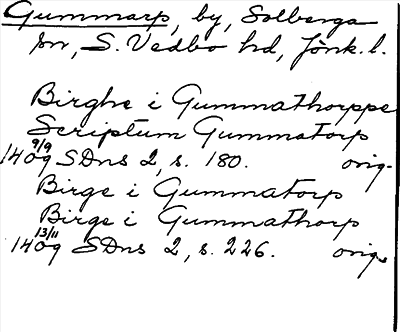 Gummarp, by, Solberga
sn, S. Vedbo hd, Jönk. l.
Birghe i Gummathorppe
Scriptum Gummatorp
1409 9/9 SDns 2, s. 180. orig.
Birge i Gummatorp
Birge i Gummathorp
1409 13/11 SDns 2, s. 226. orig.